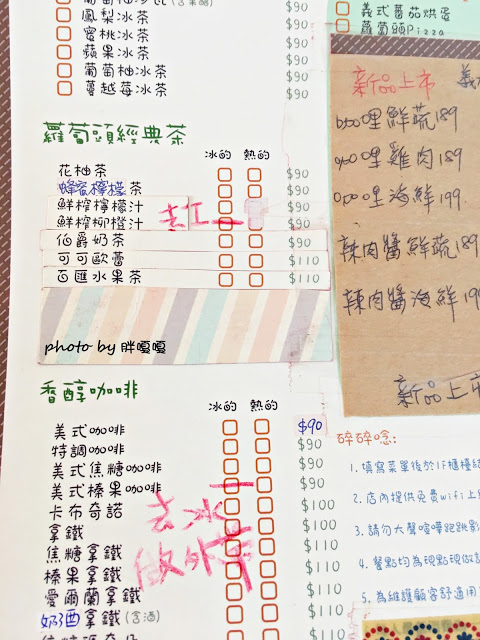 鳳梨冰茶 $90
蜜桃冰茶 $90
蘋果冰茶 $90
葡萄柚冰茶 $90
蔓越莓冰茶 $90
蘿蔔頭經典茶
冰的 熱的
花柚茶 $90
蜂蜜檸檬茶 $90
鮮榨檸檬汁 $90
鮮榨柳橙汁 $90
伯爵奶茶 $90
可可歐蕾 $110
百匯水果茶 $110
photo by 胖嘎嘎
香醇咖啡
冰的 熱的
美式咖啡 $90
特調咖啡 $90
美式焦糖咖啡 $90
美式榛果咖啡 $90
卡布奇諾 $100
拿鐵 $100
焦糖拿鐵 $110
榛果拿鐵 $110
愛爾蘭拿鐵 $110
奶酒拿鐵(含酒) $110
去冰
義式蕃茄烘蛋
蘿蔔頭Pizza
新品上市
鮮蔬189
雞肉189
海鮮199
辣肉醬鮮蔬189
辣肉醬海鮮
新品上市
碎碎唸:
1. 填寫菜單後於1F櫃檯結
2. 店內提供免費wifi上
3. 請勿大聲喧嘩跑跳影
4. 餐點均為現點現做
5. 為維護顧客舒適用